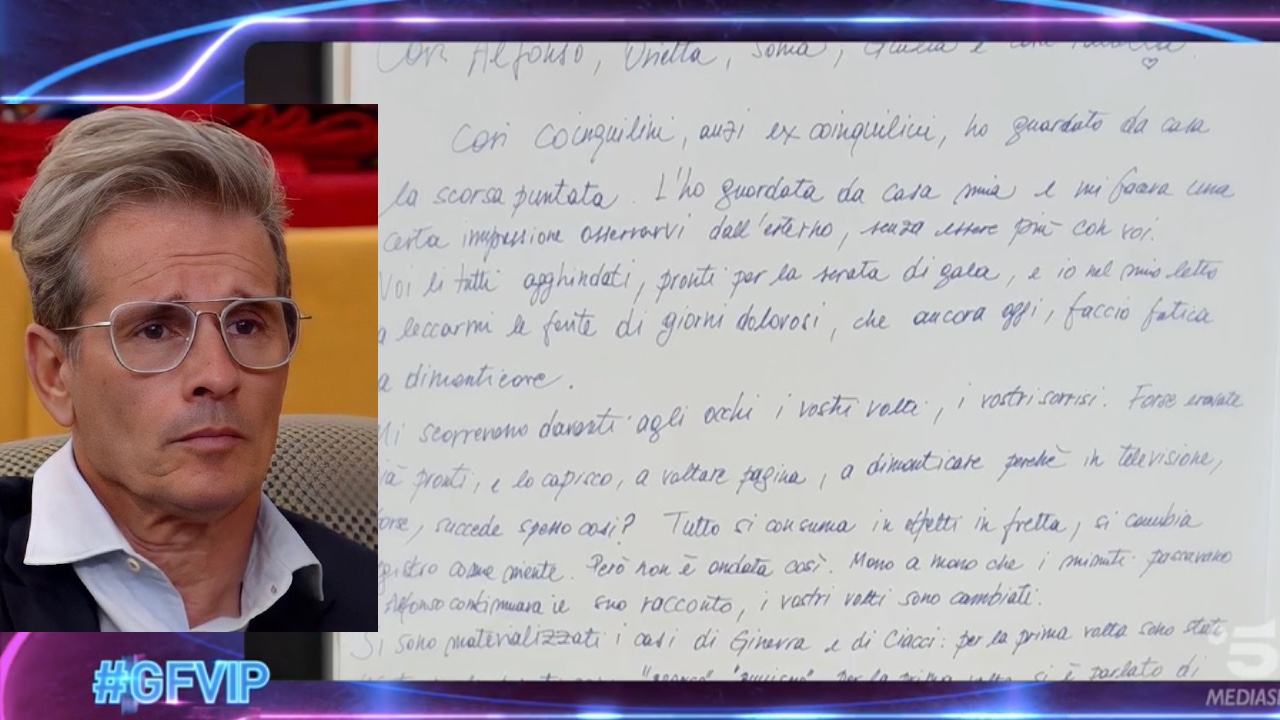 Cari Alfonso, Orietta, Sonia, Giulia e
Cari coinquilini, anzi ex coinquilini, ho guardato da casa
la scorsa puntata. L'ho guardata da casa mia e mi faceva una
certa impressione osservarvi dall'esterno, senza essere più con voi.
Voi lì tutti agghindati, pronti per la serata di gala, e io nel mio letto
a leccarmi le ferite di giorni dolorosi, che ancora oggi, faccio fatica
a dimenticare.
Mi scorrevano davanti agli occhi i vostri volti, i vostri sorrisi. Forse eravate
già pronti, e lo capisco, a voltare pagina, a dimenticare perchè in televisione,
forse, succede spesso così? Tutto si consuma in effetti in fretta, si cambia
registro come niente. Però non è andata così. Mano a mano che i minuti passavano
Alfonso continuava il suo racconto, i vostri volti sono cambiati.
Si sono materializzati i casi di Ginevra e di Ciacci: per la prima volta sono stati
per la prima volta si è parlato di
#GFVIP
5
MEDIASE